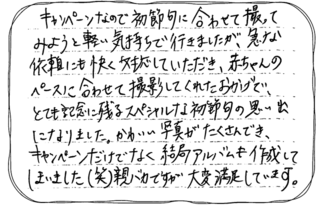 キャンペーンなので初節句に合わせて撮って
みようと軽い気持ちで行きましたが、急な
依頼にも快く対応していただき、赤ちゃんの
ペースに合わせて撮影してくれたおかげで、
とても記念に残るスペシャルな初節句の思い出
になりました。かわいい写真がたくさんでき、
キャンペーンだけでなく結局アルバムも作成して
しまいました(笑)親バカですが大変満足しています。